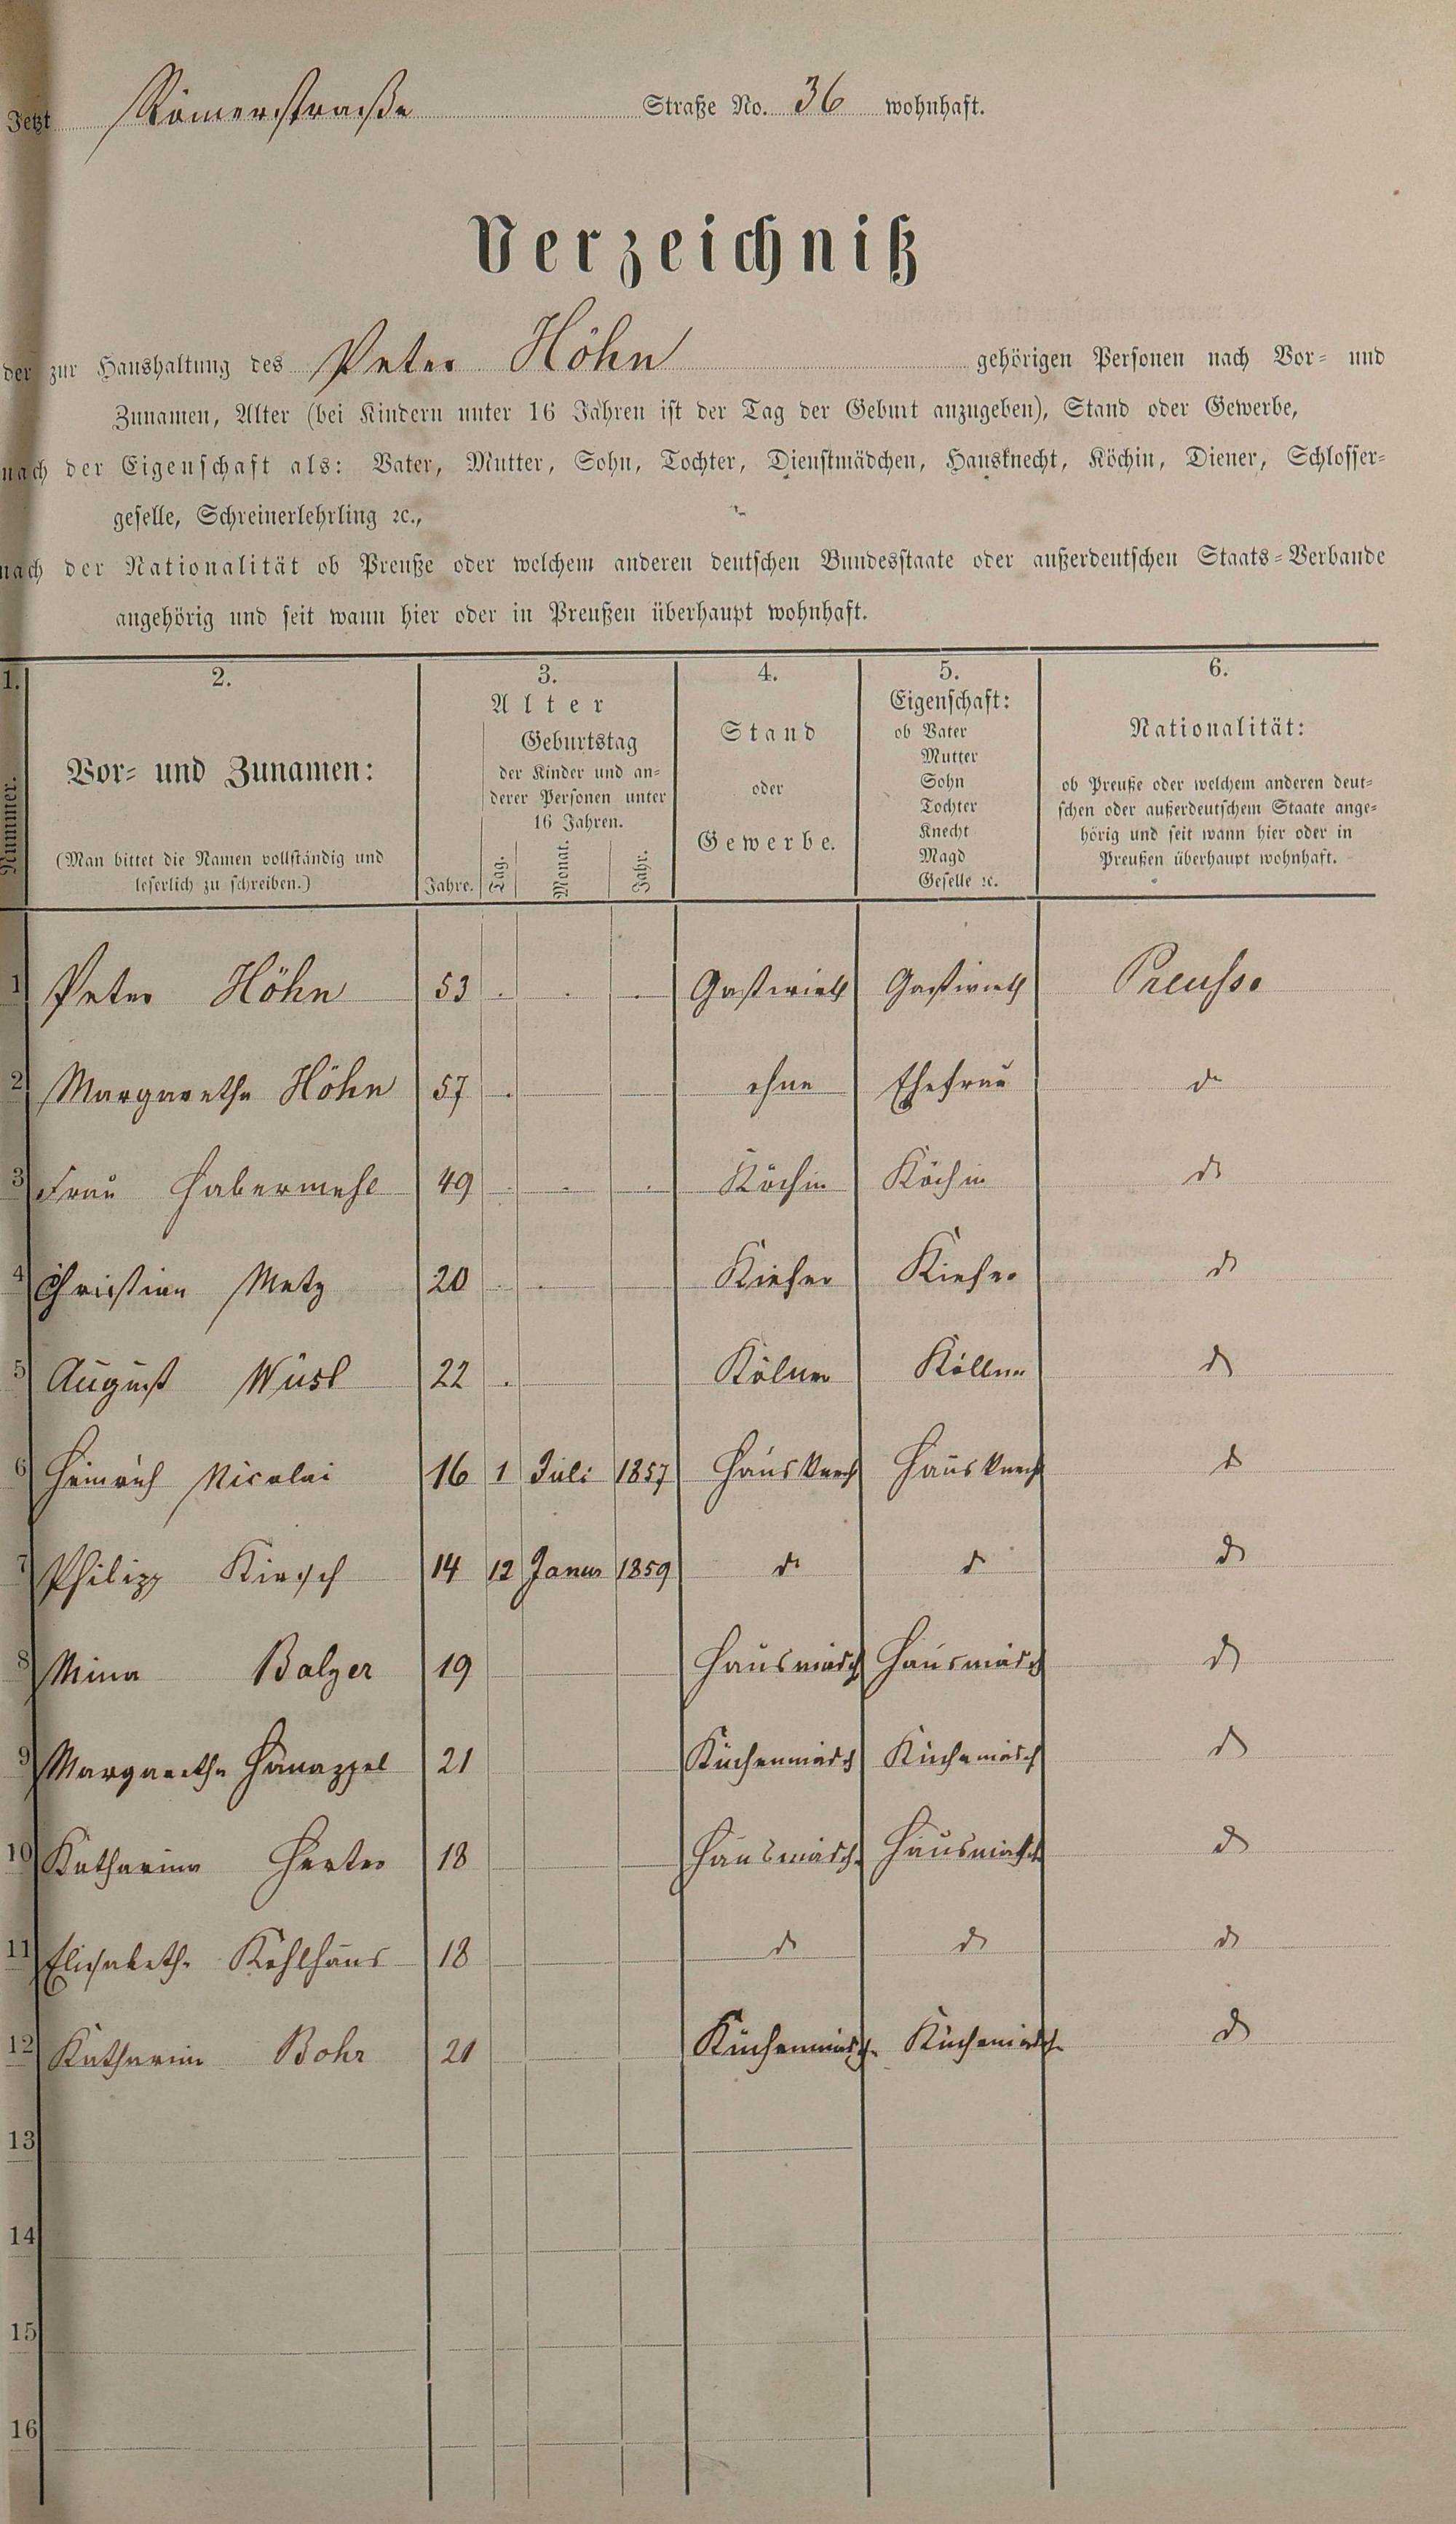 Jetzt Römerstraße Straße No. 36 wohnhaft.
Verzeichniß
der zur Haushaltung des Peter Höhn gehörigen Personen nach Vor- und
Zunamen, Alter (bei Kindern unter 16 Jahren ist der Tag der Geburt anzugeben), Stand oder Gewerbe,
nach der Eigenschaft als: Vater, Mutter, Sohn, Tochter, Dienstmädchen, Hausknecht, Köchin, Diener, Schlosser-
geselle, Schreinerlehrling ꝛc.,
nach der Nationalität ob Preuße oder welchem anderen deutschen Bundesstaate oder außerdeutschen Staats-Verbande
angehörig und seit wann hier oder in Preußen überhaupt wohnhaft.
1. 2. 3. 4. 5. 6.
Nummer.
Vor- und Zunamen:
(Man bittet die Namen vollständig und
leserlich zu schreiben.)
Alter
Jahre.
Geburtstag
der Kinder und an-
derer Personen unter
16 Jahren.
Tag. Monat. Jahr.
Stand
oder
Gewerbe.
Eigenschaft:
ob Vater
Mutter
Sohn
Tochter
Knecht
Magd
Geselle ꝛc.
Nationalität:
ob Preuße oder welchem anderen deut-
schen oder außerdeutschem Staate ange-
hörig und seit wann hier oder in
Preußen überhaupt wohnhaft.
1 Peter Höhn 53 . . . Gastwirth Gastwirth Preusse
2 Margarethe Höhn 57 . ohne Ehefrau do
3 Frau Habermehl 49 . . . Köchin Köchin do
4 Christian Metz 20 . . Kiefer Kiefer do
5 August Wüst 22 . Kölner Köllner do
6 Heinrich Nicolai 16 1 Juli 1857 Hausknech Hausknech do
7 Philipp Kirsch 14 12 Janur 1859 do do do
8 Mina Balzer 19 Hausmädch Hausmädch do
9 Margarethe Hanappel 21 Küchenmädch Küchemädch do
10 Katharina Herter 18 Hausmädch. Hausmädch. do
11 Elisabeth. Kohlhaus 18 do do do
12 Katharina Bohr 21 Küchenmädch. Küchemädch. do
13
14
15
16